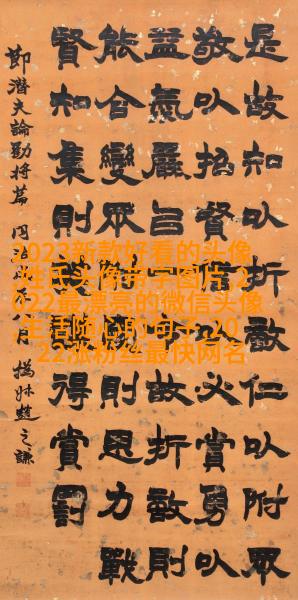 是故知以折敵仁以附眾
敬以招賢以必賞勇以
益氣嚴吕故折敵則
能合變眾則恩力戰
賢知集則得賞罰
節潛夫論勸將篇 同治八月 撝叔趙之謙
2023新款好看的头像
,姓氏头像带字图片,2
022最漂亮的微信头像
,生活随心的句子,20
22涨粉丝最快网名